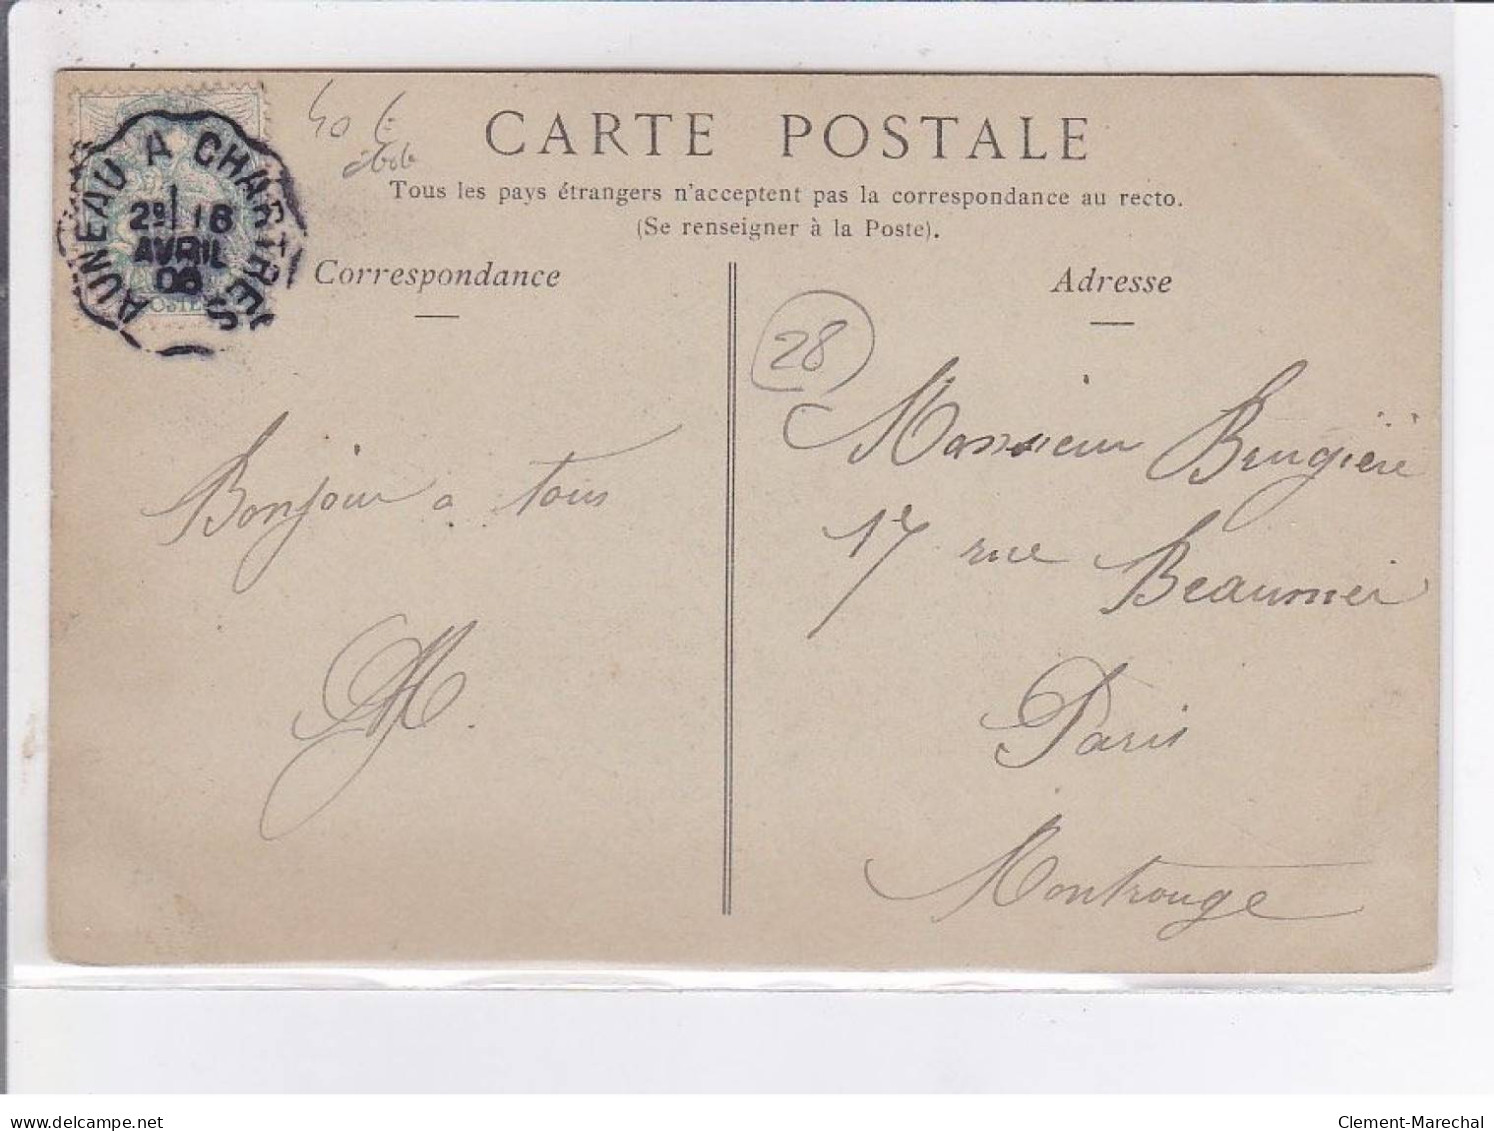 CARTE POSTALE
Tous les pays étrangers n'acceptent pas la correspondance au recto.
(Se renseigner à la Poste).
AUNEAU A CHARTRES
2º 16
AVRIL
06
POSTES
40 €
Correspondance
Adresse
28
Bonjour a tous
Monsieur Brugière
17 rue Beaunier
Paris
Montrouge
delcampe.net
Clement-Marechal